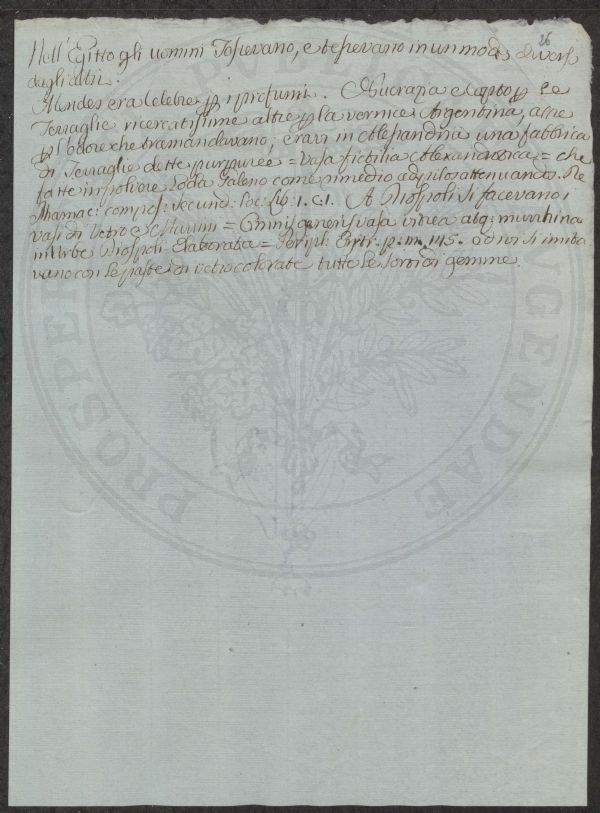 26
Nell' Egitto gli uomini Tessevano, e tessevano in un modo diverso
dagli altri.
Mendes era celebre p i profumi. Nucrazia e Copto p le
Terraglie ricercatissime altre p la vernice Argentina, altre
p l'odore che tramandavano, e eravi in Alessandria una fabbrica
di Terraglie dette purpuree = Vasa fictilia Alexandrica = che
fatte in polvere loda Galeno come rimedio ad pilos attenuandos. De
Pharmac: compos: secund: loc: lib: 1. c. 1. A Diospoli si facevano i
vasi di vetro e Murini = Omnis generis vasa vitrea atq: murrhina
in Urbe Diospoli Elaborata = Peripl: Eritr: p. m. 145. ed ivi si imita
vano con le paste di vetro colorate tutte le sorti di gemme.
PUBLICAE
AUGENDAE
PROSPERITATI